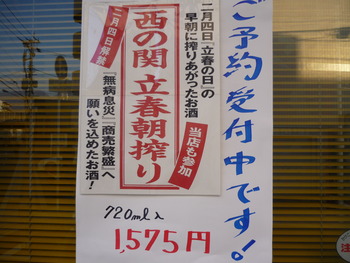 ご予約受付中です！
二月四日『立春の日』の
早朝に搾りあがったお酒
西の関 立春朝搾り
二月四日解禁
当店も参加
『無病息災』『商売繁盛』へ
願いを込めたお酒！
720ml入
1,575円